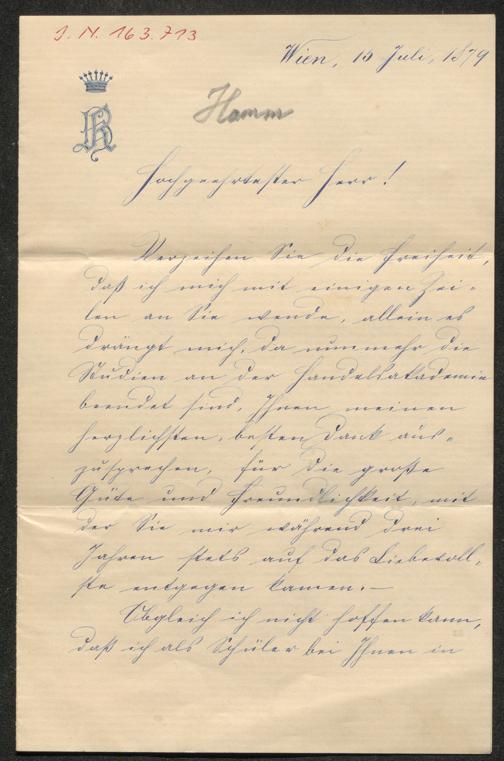 J. N. 163.713
Wien, 15 Juli, 1879
Hamm
Hochgeehrtester Herr!
Verzeihen Sie die Freiheit,
daß ich mich mit einigen Zei-
len an Sie wende, allein es
drängt mich, da nunmehr die
Studien an der Handelsakademie
beendet sind, Ihnen meinen
herzlichsten, besten Dank aus-
zusprechen, für die große
Güte und Freundlichkeit, mit
der Sie mir während drei
Jahren stets auf das Liebevoll-
ste entgegen kamen.-
Obgleich ich nicht hoffen kann,
daß ich als Schüler bei Ihnen in